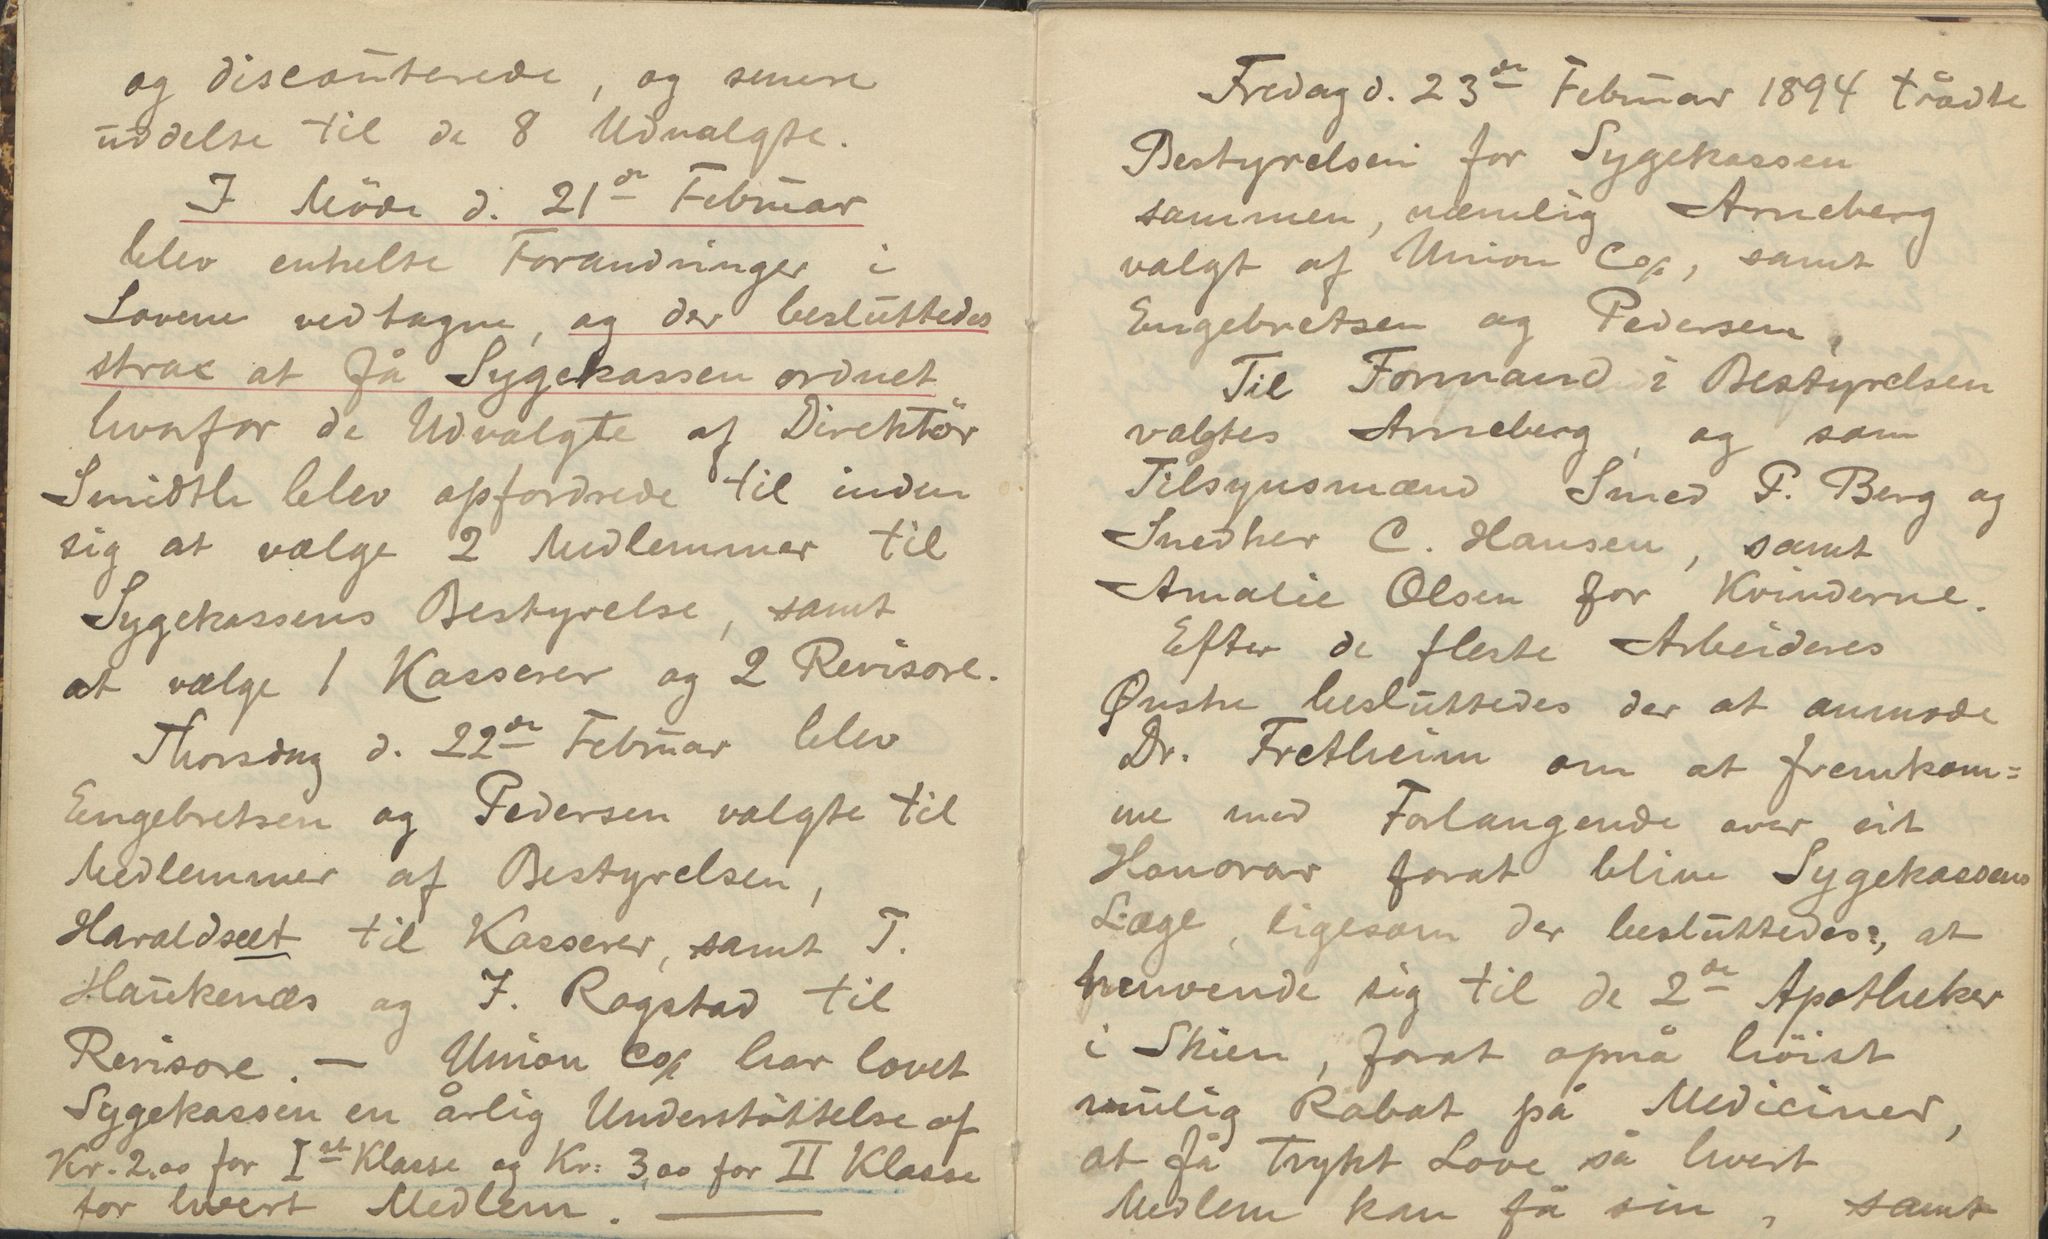 og discoūterede, og senere
ūddelte til de 8 Udvalgte.
I Möde d. 21de Febrūar
blev enkelte Forandringer i
Lovene vedtagne, og der beslūttedes
strax at få Sygekassen ordnet
hvorfor de Udvalgte af Direktör
Smidth blev opfordrede til inden
sig at vælge 2 Medlemmer til
Sygekassens Bestyrelse, samt
at vælge 1 Kasserer og 2 Revisore.
Thorsdag d. 22de Febrūar blev
Engebretsen og Pedersen valgte til
Medlemmer af Bestyrelsen,
Haraldsæt til Kasserer, samt T.
Haūkenæs og J. Rogstad til
Revisore. — Union Co/s har lovet
Sygekassen en årlig Understöttelse af
Kr. 2,00 for Iste Klasse og Kr: 3,00 for II Klasse
for hvert Medlem. —
Fredag d. 23de Febrūar 1894 trådte
Bestyrelsen for Sygekassen
sammen, næmlig Arneberg
valgt af Union Co/s, samt
Engebretsen og Pedersen,
Til Formand i Bestyrelsen
valgtes Arneberg, og som
Tilsynsmænd Smed P. Berg og
Snedker C. Hansen, samt
Amalie Olsen for Kvinderne.
Efter de fleste Arbeideres
Ønske beslūttedes der at anmode
Dr. Fretheim om at fremkom=
me med Forlangende over eit
Honorar forat blive Sygekassens
Læge, ligesom der beslūttedes, at
henvende sig til de 2de Apotheker
i Skien, forat opnå höist
mūlig Rabat på Mediciner,
at få Trykt Love så hvert
Medlem kan få sin, samt